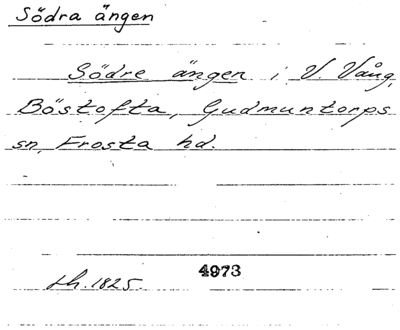 Södra ängen
Södre ängen i V. Vång,
Böstofta, Gudmuntorps
sn, Frosta hd.
Lh. 1825. 4973